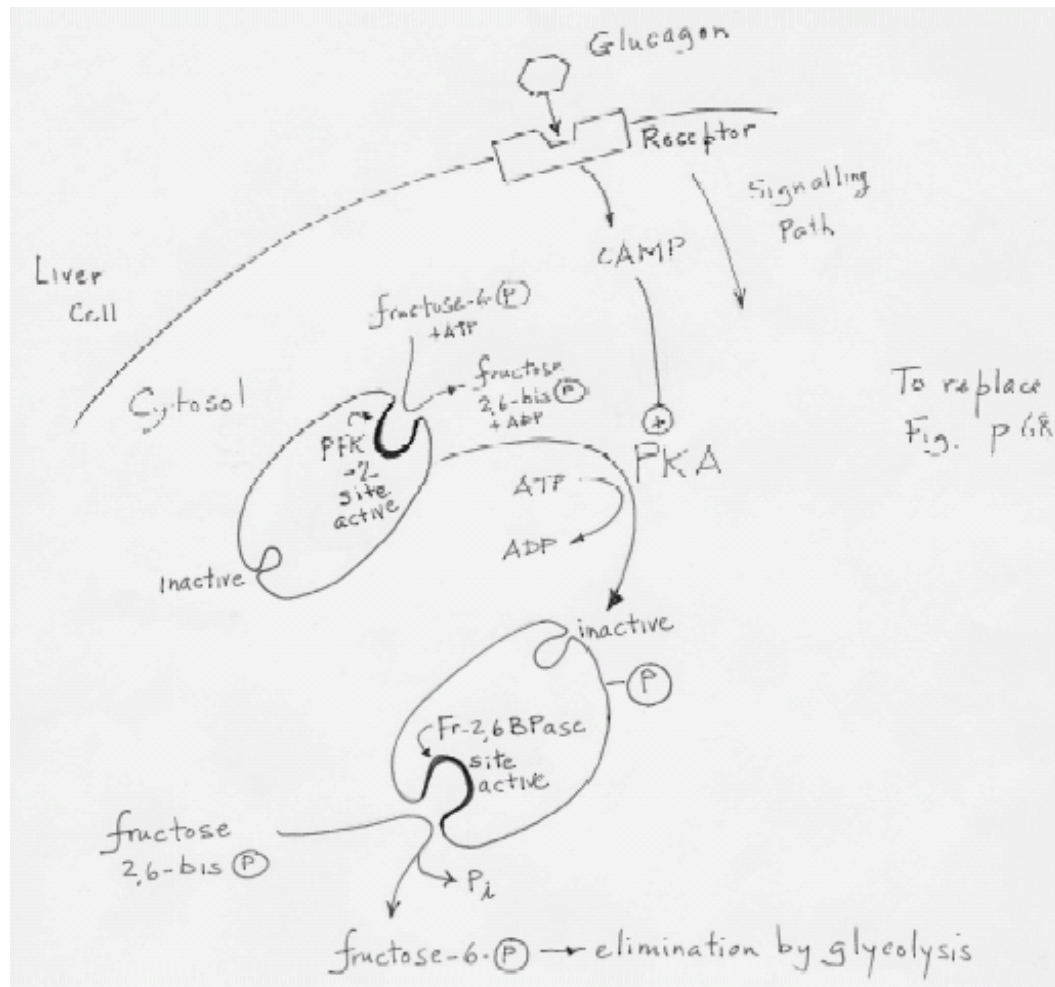 Glucagon
Receptor
Signalling
Path
cAMP
Liver
Cell
fructose-6-P
+ATP
fructose
2,6-bis P
+ ADP
Cytosol
To replace
Fig. p
PFK
-2
site
active
+
PKA
ATP
ADP
inactive
inactive
P
Fr-2,6 BPase
site
active
fructose
2,6-bis P
Pi
fructose-6-P → elimination by glycolysis